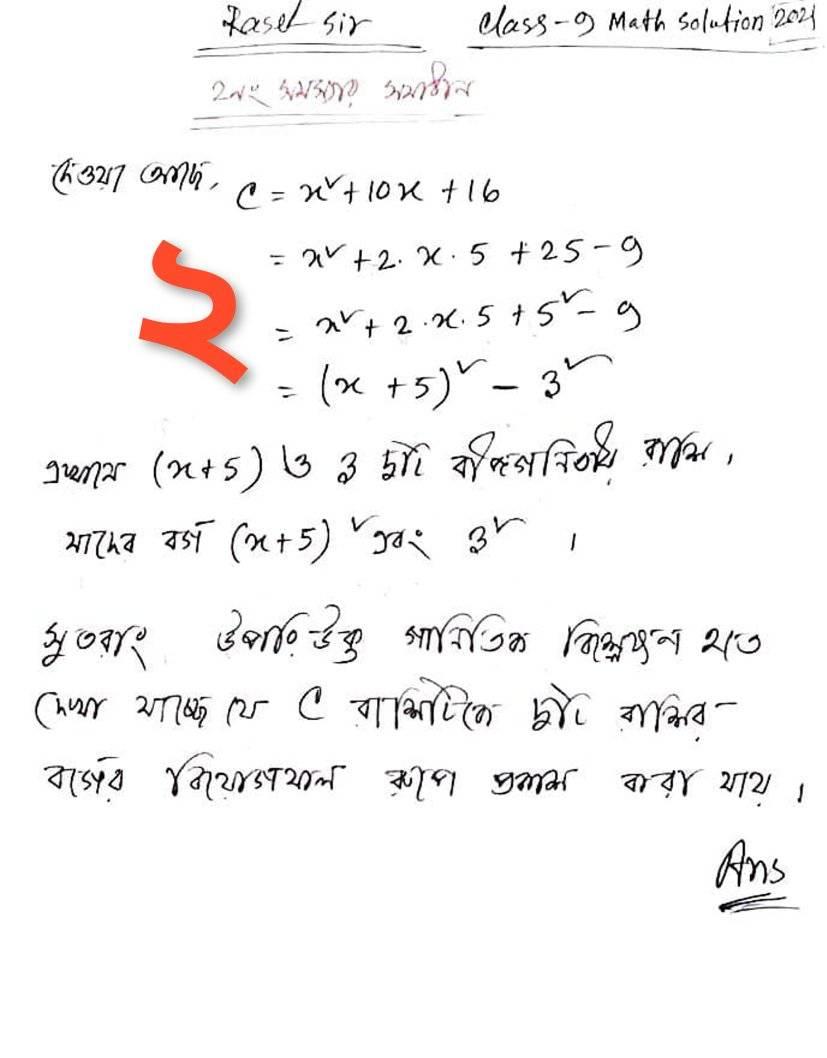 Rasel Sir
Class-9 Math Solution 2021
2নং সমস্যার সমাধান
দেওয়া আছে, C = x² + 10x + 16
= x² + 2. x. 5 + 25 - 9
২
= x² + 2.x.5 + 5² - 9
= (x + 5)² - 3²
এখানে (x+5) ও 3 দুটি বীজগানিতীয় রাশি,
যাদের বর্গ (x+5)² এবং 3² ।
সুতরাং উপরিউক্ত গানিতিক বিশ্লেষন হতে
দেখা যাচ্ছে যে C রাশিটিকে দুটি রাশির-
বর্গের বিয়োগফল রূপে প্রকাশ করা যায় ।
Ans